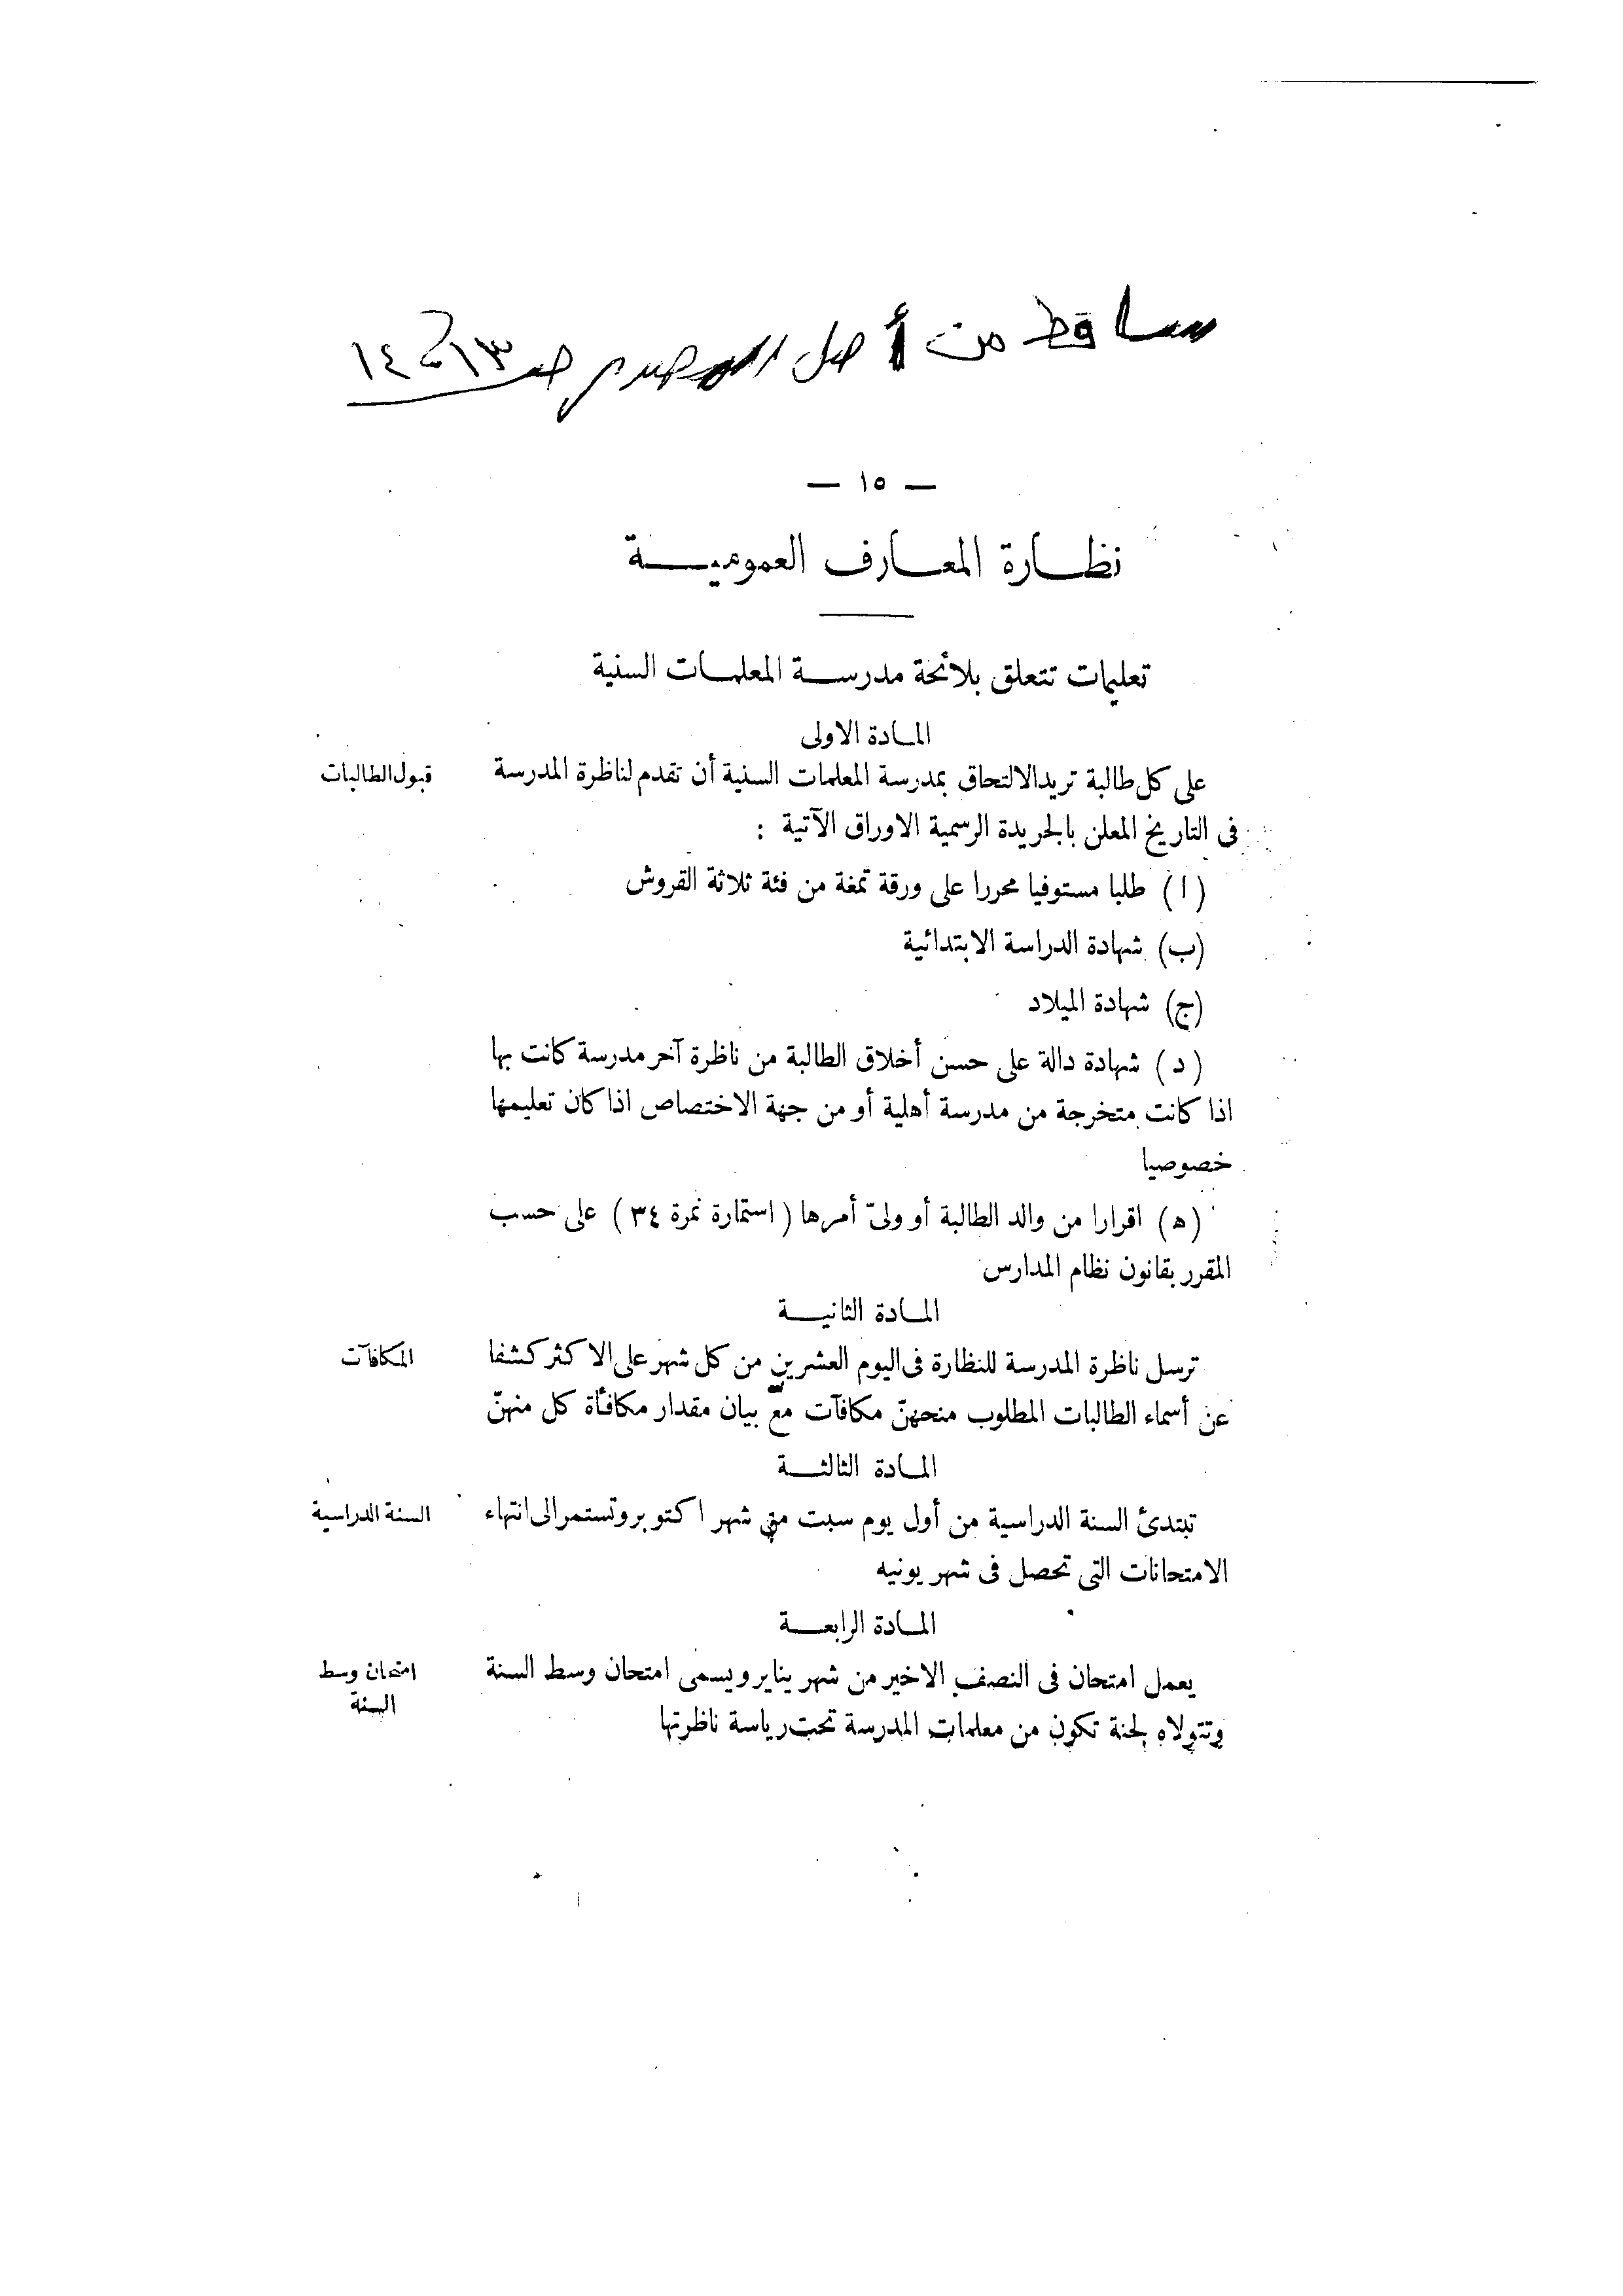 ساقط من أصل المصدر صـ ١٣، ١٤
— ١٥ —
نظارة المعارف العمومية
تعليمات تتعلق بلائحة مدرسة المعلمات السنية
المادة الاولى
قبول الطالبات
على كل طالبة تريد الالتحاق بمدرسة المعلمات السنية أن تقدم لناظرة المدرسة
فى التاريخ المعلن بالجريدة الرسمية الاوراق الآتية :
(ا) طلبا مستوفيا محررا على ورقة تمغة من فئة ثلاثة القروش
(ب) شهادة الدراسة الابتدائية
(ج) شهادة الميلاد
(د) شهادة دالة على حسن أخلاق الطالبة من ناظرة آخر مدرسة كانت بها
اذا كانت متخرجة من مدرسة أهلية أو من جهة الاختصاص اذا كان تعليمها
خصوصيا
(ه) اقرارا من والد الطالبة أو ولىّ أمرها (استمارة نمرة ٣٤) على حسب
المقرر بقانون نظام المدارس
المادة الثانية
المكافآت
ترسل ناظرة المدرسة للنظارة فى اليوم العشرين من كل شهر على الاكثر كشفا
عن أسماء الطالبات المطلوب منحهنّ مكافآت مع بيان مقدار مكافأة كل منهنّ
المادة الثالثة
السنة الدراسية
تبتدئ السنة الدراسية من أول يوم سبت من شهر اكتوبر وتستمر الى انتهاء
الامتحانات التى تحصل فى شهر يونيه
المادة الرابعة
امتحان وسط
السنة
يعمل امتحان فى النصف الاخير من شهر يناير ويسمى امتحان وسط السنة
وتتولاه لجنة تكون من معلمات المدرسة تحت رياسة ناظرتها